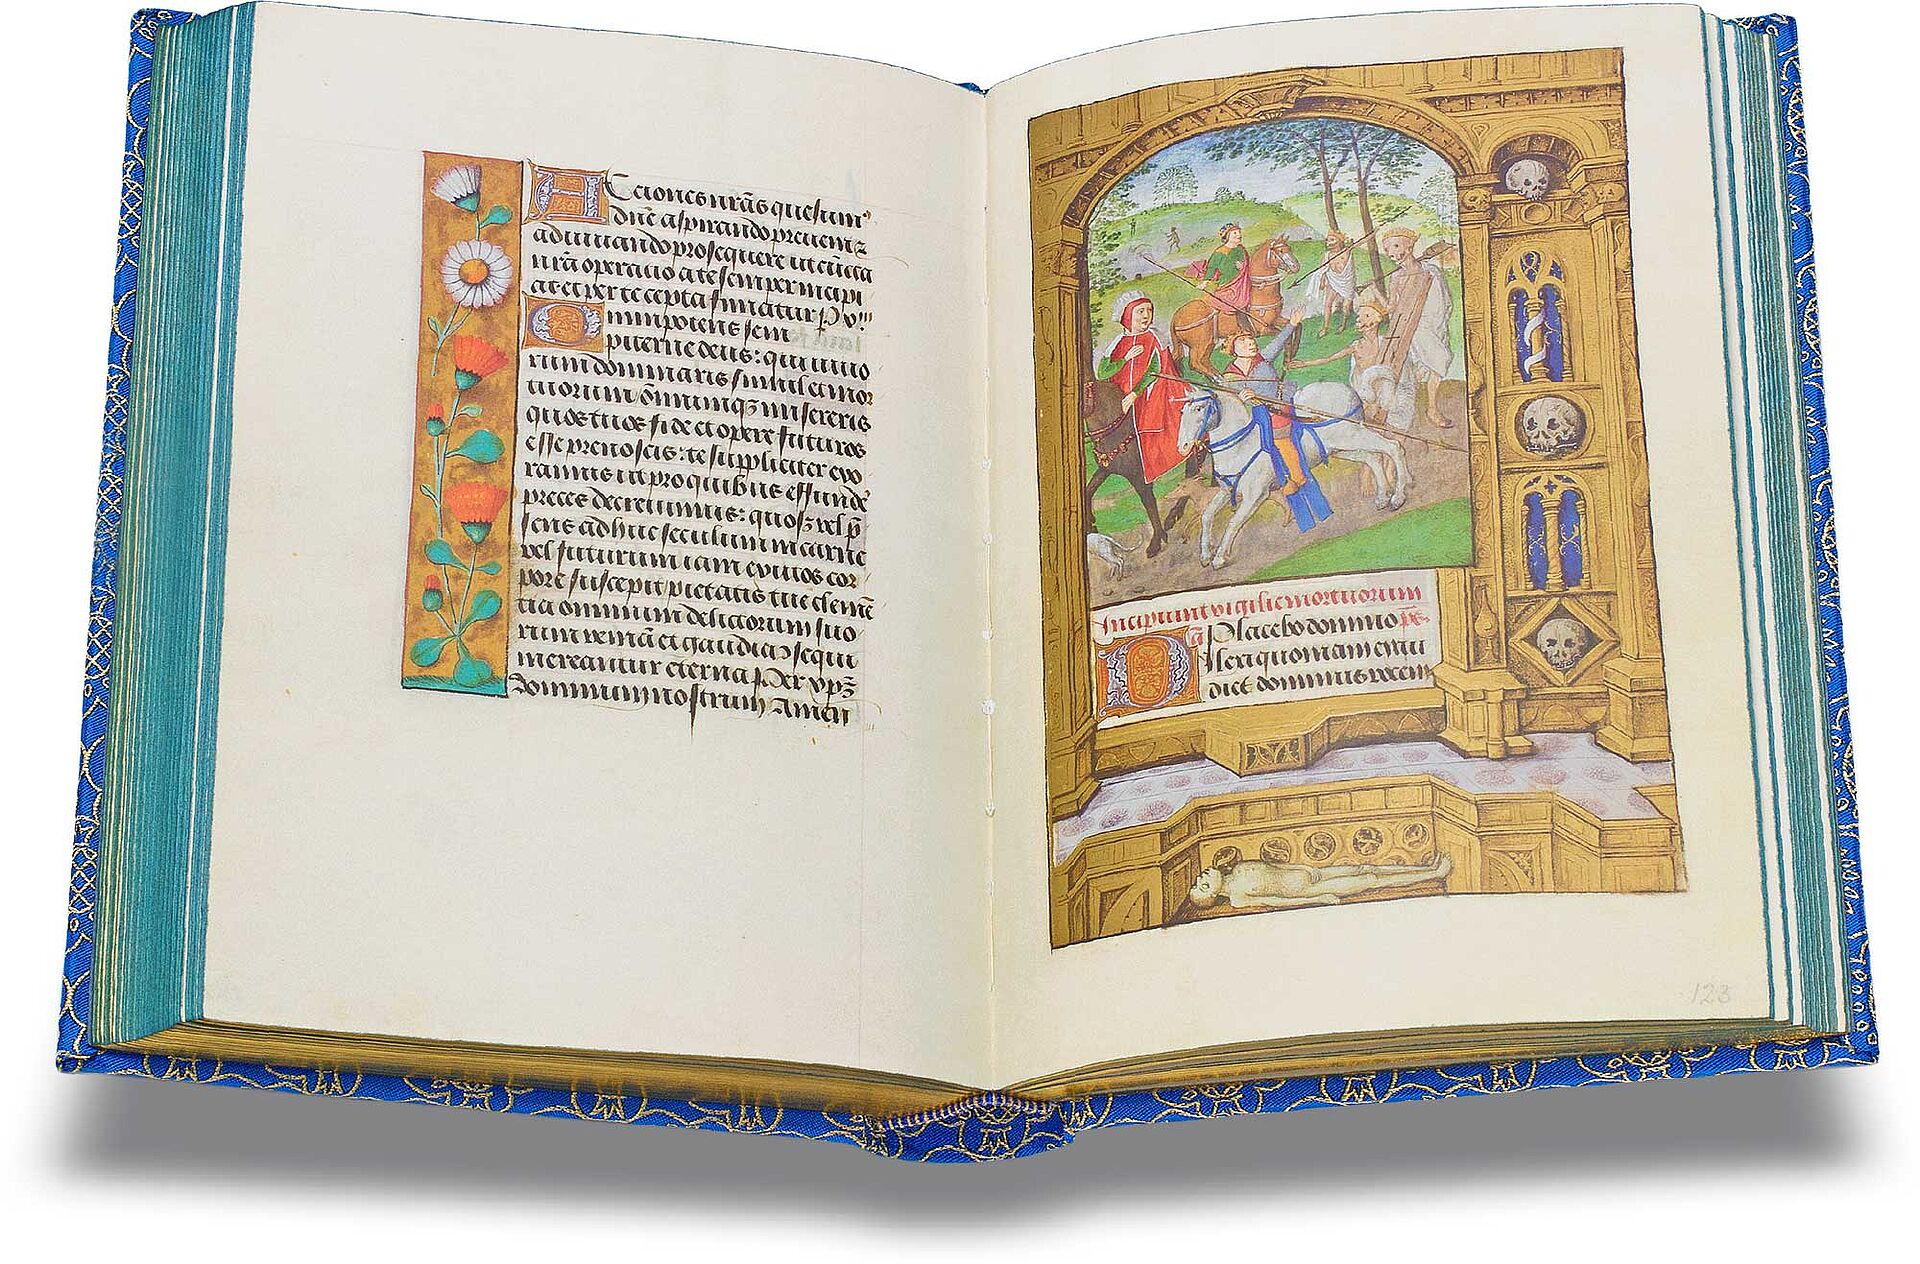 Actiones nr̄as quesum⁹
dn̄e aspirando preueni ⁊
adiuuando prosequere ut cūcta
nr̄a operacio a te semper incipi
at et per te cepta finiatur P xp̄m
Omnipotens sem
piterne deus: qui uiuo
rum dominaris simul et mor
tuorum om̄niumqꝫ misereris
quos tuos fide et opere futuros
esse prenoscis: te suppliciter exo
ramus ut pro quibus effunde̅
preces decreuimus: quosqꝫ vel p̄
sens adhuc seculum in carne
vel futurum iam exutos cor
pore suscepit pietatis tue clemē
tia omnium delictorum suo
rum veniā et gaudia ↄsequi
mereantur eterna Per xp̄m
dominum nostrum Amen
Incipiunt vigilie mortuorum
a͞ Placebo domino ps̄
Dilexi quoniam exau
diet dominus vocem
123